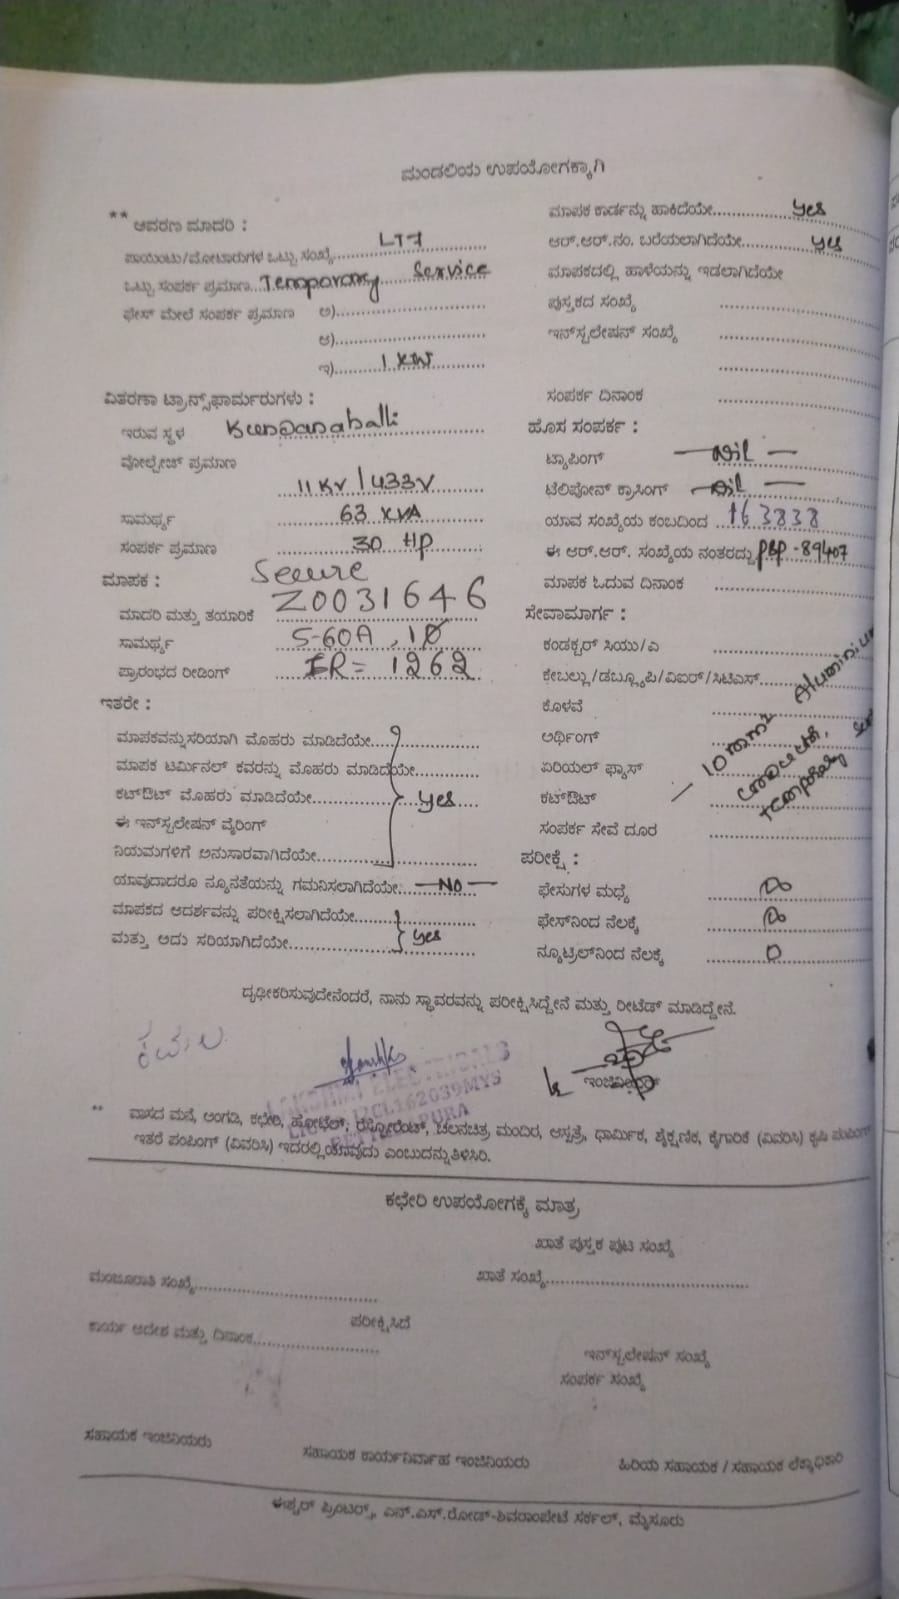 ಮಂಡಲಿಯ ಉಪಯೋಗಕ್ಕಾಗಿ
** ಆವರಣ ಮಾದರಿ :
ಪಾಯಿಂಟು/ಮೋಟಾರುಗಳ ಒಟ್ಟು ಸಂಖ್ಯೆ......LT7
ಒಟ್ಟು ಸಂಪರ್ಕ ಪ್ರಮಾಣ...Temporary Service
ಫೇಸ್ ಮೇಲೆ ಸಂಪರ್ಕ ಪ್ರಮಾಣ ಅ)......
ಆ)......
ಇ)......1 KW
ವಿತರಣಾ ಟ್ರಾನ್ಸ್‌ಫಾರ್ಮರುಗಳು :
ಇರುವ ಸ್ಥಳ Kundanahalli
ವೋಲ್ಟೇಜ್ ಪ್ರಮಾಣ
11 KV / 433V
ಸಾಮರ್ಥ್ಯ 63 KVA
ಸಂಪರ್ಕ ಪ್ರಮಾಣ 30 HP
ಮಾಪಕ : Secure
ಮಾದರಿ ಮತ್ತು ತಯಾರಿಕೆ Z0031646
ಸಾಮರ್ಥ್ಯ 5-60A, 1Ø
ಪ್ರಾರಂಭದ ರೀಡಿಂಗ್ IR = 1262
ಇತರೇ :
ಮಾಪಕವನ್ನು ಸರಿಯಾಗಿ ಮೊಹರು ಮಾಡಿದೆಯೇ......
ಮಾಪಕ ಟರ್ಮಿನಲ್ ಕವರನ್ನು ಮೊಹರು ಮಾಡಿದೆಯೇ......
ಕಟ್‌ಔಟ್ ಮೊಹರು ಮಾಡಿದೆಯೇ......yes
ಈ ಇನ್‌ಸ್ಟಲೇಷನ್ ವೈರಿಂಗ್
ನಿಯಮಗಳಿಗೆ ಅನುಸಾರವಾಗಿದೆಯೇ......
ಯಾವುದಾದರೂ ನ್ಯೂನತೆಯನ್ನು ಗಮನಿಸಲಾಗಿದೆಯೇ...—No—
ಮಾಪಕದ ಆದರ್ಶವನ್ನು ಪರೀಕ್ಷಿಸಲಾಗಿದೆಯೇ......
ಮತ್ತು ಅದು ಸರಿಯಾಗಿದೆಯೇ......yes
ಮಾಪಕ ಕಾರ್ಡನ್ನು ಹಾಕಿದೆಯೇ......yes
ಆರ್.ಆರ್.ನಂ. ಬರೆಯಲಾಗಿದೆಯೇ......yes
ಮಾಪಕದಲ್ಲಿ ಹಾಳೆಯನ್ನು ಇಡಲಾಗಿದೆಯೇ
ಪುಸ್ತಕದ ಸಂಖ್ಯೆ ......
ಇನ್‌ಸ್ಟಲೇಷನ್ ಸಂಖ್ಯೆ ......
ಸಂಪರ್ಕ ದಿನಾಂಕ ......
ಹೊಸ ಸಂಪರ್ಕ :
ಟ್ಯಾಪಿಂಗ್ —Nil—
ಟೆಲಿಪೋನ್ ಕ್ರಾಸಿಂಗ್ —Nil—
ಯಾವ ಸಂಖ್ಯೆಯ ಕಂಬದಿಂದ 163838
ಈ ಆರ್.ಆರ್. ಸಂಖ್ಯೆಯ ನಂತರದ್ದು PBP-89407
ಮಾಪಕ ಓದುವ ದಿನಾಂಕ ......
ಸೇವಾಮಾರ್ಗ :
ಕಂಡಕ್ಟರ್ ಸಿಯು/ಎ ......
ಕೇಬಲ್ಲು/ಡಬ್ಲ್ಯೂಪಿ/ವಿಐಆರ್/ಸಿಟಿಎಸ್......
ಕೊಳವೆ ......
ಅರ್ಥಿಂಗ್ ......
ಏರಿಯಲ್ ಫ್ಯೂಸ್ ......
ಕಟ್‌ಔಟ್ ......
ಸಂಪರ್ಕ ಸೇವೆ ದೂರ ......
ಪರೀಕ್ಷೆ :
ಫೇಸುಗಳ ಮಧ್ಯೆ ∞
ಫೇಸ್‌ನಿಂದ ನೆಲಕ್ಕೆ ∞
ನ್ಯೂಟ್ರಲ್‌ನಿಂದ ನೆಲಕ್ಕೆ 0
ದೃಢೀಕರಿಸುವುದೇನೆಂದರೆ, ನಾನು ಸ್ಥಾವರವನ್ನು ಪರೀಕ್ಷಿಸಿದ್ದೇನೆ ಮತ್ತು ರೀಟೆಡ್ ಮಾಡಿದ್ದೇನೆ.
ಕಮಲ
** ವಾಸದ ಮನೆ, ಅಂಗಡಿ, ಕಛೇರಿ, ಹೋಟೆಲ್, ರೆಸ್ಟೋರೆಂಟ್, ಚಲನಚಿತ್ರ ಮಂದಿರ, ಆಸ್ಪತ್ರೆ, ಧಾರ್ಮಿಕ, ಶೈಕ್ಷಣಿಕ, ಕೈಗಾರಿಕೆ (ವಿವರಿಸಿ) ಕೃಷಿ ಪಂಪಿಂಗ್
ಇತರೆ ಪಂಪಿಂಗ್ (ವಿವರಿಸಿ) ಇದರಲ್ಲಿ ಯಾವುದು ಎಂಬುದನ್ನು ತಿಳಿಸಿರಿ.
ಕಛೇರಿ ಉಪಯೋಗಕ್ಕೆ ಮಾತ್ರ
ಖಾತೆ ಪುಸ್ತಕ ಪುಟ ಸಂಖ್ಯೆ
ಮಂಜೂರಾತಿ ಸಂಖ್ಯೆ...... ಖಾತೆ ಸಂಖ್ಯೆ......
ಪರೀಕ್ಷಿಸಿದೆ
ಕಾರ್ಯ ಆದೇಶ ಮತ್ತು ದಿನಾಂಕ......
ಇನ್‌ಸ್ಟಲೇಷನ್ ಸಂಖ್ಯೆ
ಸಂಪರ್ಕ ಸಂಖ್ಯೆ
ಸಹಾಯಕ ಇಂಜಿನಿಯರು ಸಹಾಯಕ ಕಾರ್ಯನಿರ್ವಾಹ ಇಂಜಿನಿಯರು ಹಿರಿಯ ಸಹಾಯಕ / ಸಹಾಯಕ ಲೆಕ್ಕಾಧಿಕಾರಿ
ಈಶ್ವರ್ ಪ್ರಿಂಟರ‍್ಸ್, ಎನ್.ಎಸ್.ರೋಡ್-ಶಿವರಾಂಪೇಟೆ ಸರ್ಕಲ್, ಮೈಸೂರು